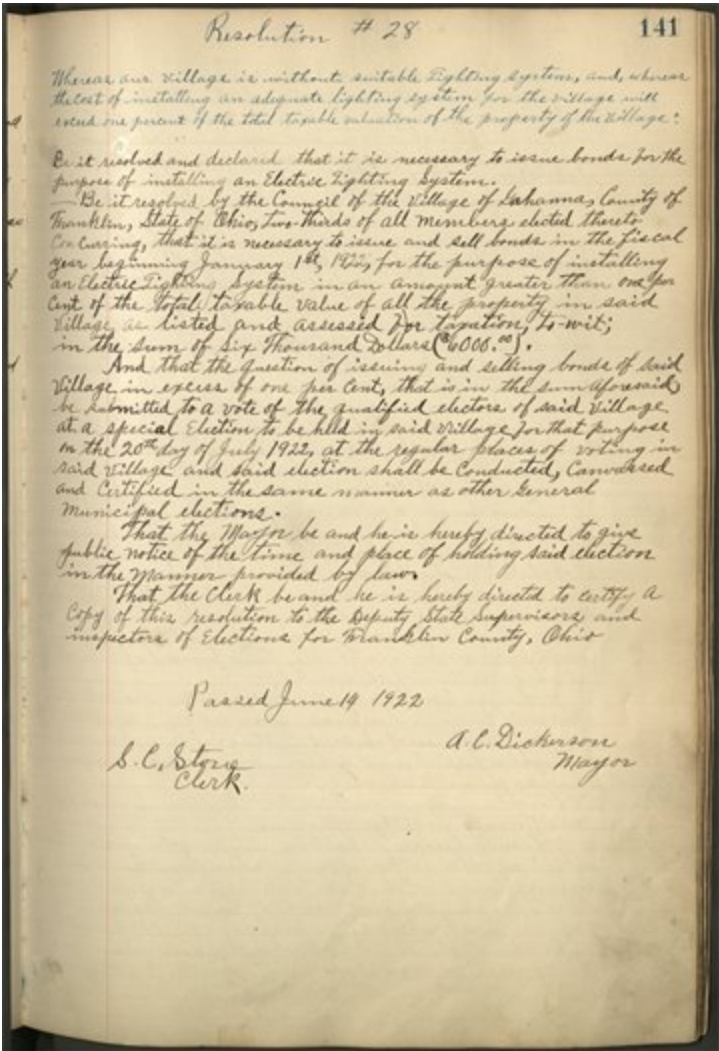 Resolution # 28
141
Whereas our Village is without suitable Lighting system, and, whereas
the cost of installing an adequate lighting system for the village will
exceed one percent of the total taxable valuation of the property of the Village:
Be it resolved and declared that it is necessary to issue bonds for the
purpose of installing an Electric Lighting System.
Be it resolved by the Council of the Village of Gahanna, County of
Franklin, State of Ohio, two-thirds of all members elected thereto
Concurring, that it is necessary to issue and sell bonds in the fiscal
year beginning January 1st, 1922, for the purpose of installing
an Electric Lighting System in an amount greater than one per
Cent of the total taxable value of all the property in said
Village, as listed and assessed for taxation, to-wit;
in the sum of Six Thousand Dollars ($6000.00).
And that the question of issuing and selling bonds of said
Village in excess of one per cent, that is in the sum aforesaid,
be submitted to a vote of the qualified electors of said Village
at a special Election to be held in said Village for that purpose
on the 20th day of July 1922, at the regular places of voting in
said Village and said election shall be Conducted, Canvassed
and Certified in the same manner as other General
Municipal elections.
That the Mayor be and he is hereby directed to give
public notice of the time and place of holding said election
in the Manner provided by law.
That the Clerk be and he is hereby directed to certify a
Copy of this resolution to the Deputy State Supervisors and
inspectors of Elections for Franklin County, Ohio
Passed June 19 1922
A.C. Dickerson
Mayor
S.C.
Clerk.